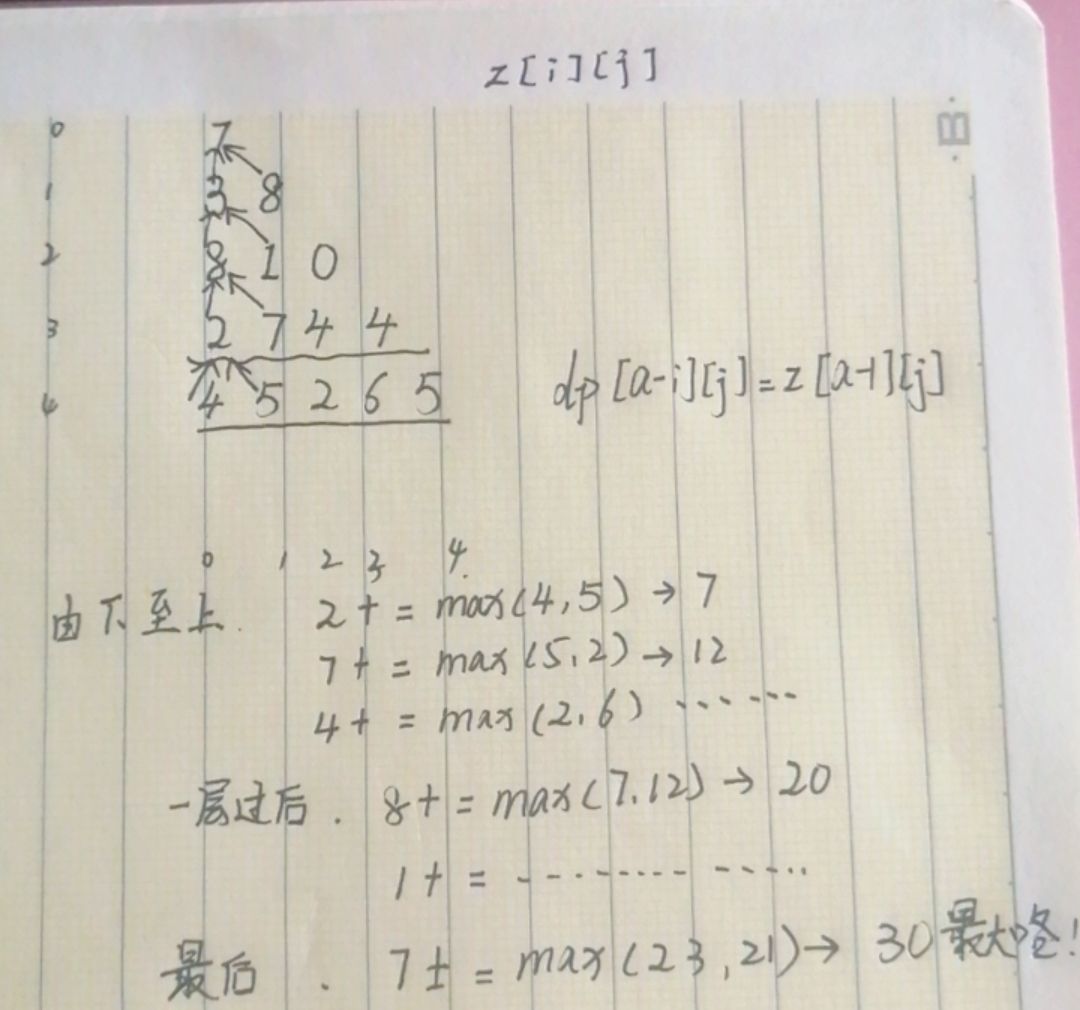 z[i][j]
·B·
0 7
1 3 8
2 8 1 0
3 2 7 4 4
4 4 5 2 6 5
dp[a-i][j]=z[a-1][j]
0 1 2 3 4
由下至上. 2+=max(4,5)→7
7+=max(5,2)→12
4+=max(2,6)······
一层过后. 8+=max(7,12)→20
1+=··············
最后. 7+=max(23,21)→30最大咯!